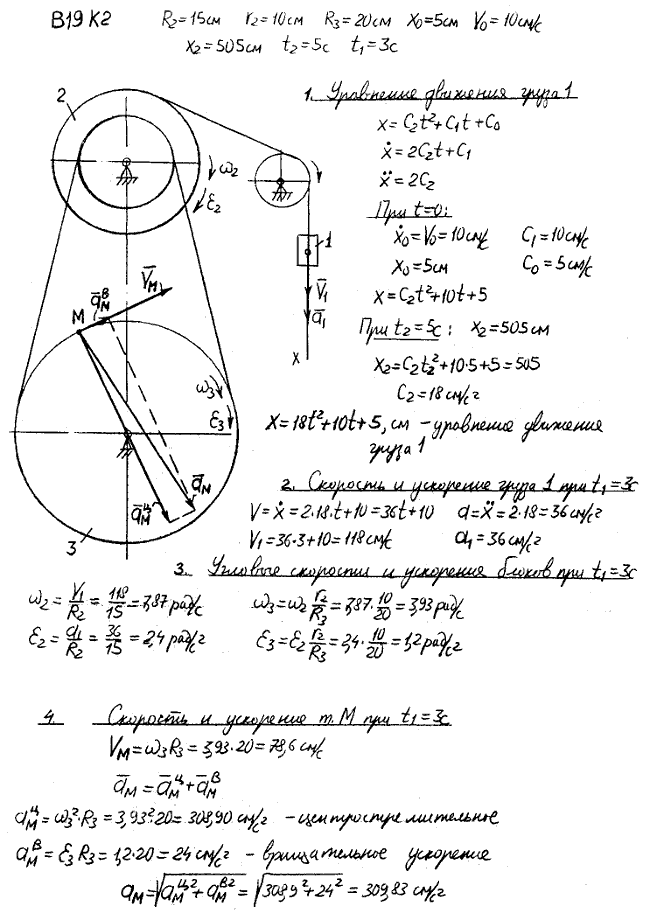 В19 К2 R2=15см r2=10см R3=20см x0=5см V0=10см/с
x2=505см t2=5с t1=3с
2
ω2
ε2
1
V̅1
a̅1
x
V̅M
a̅Mᴮ
M
ω3
ε3
a̅M
a̅Mᶣ
3
1. Уравнение движения груза 1
x=C2t²+C1t+C0
ẋ=2C2t+C1
ẍ=2C2
При t=0:
ẋ0=V0=10см/с C1=10см/с
x0=5см C0=5см/с
x=C2t²+10t+5
При t2=5с: x2=505см
x2=C2t2²+10·5+5=505
C2=18см/с²
x=18t²+10t+5, см – уравнение движения
груза 1
2. Скорость и ускорение груза 1 при t1=3с
V=ẋ=2·18·t+10=36t+10 a=ẍ=2·18=36см/с²
V1=36·3+10=118см/с a1=36см/с²
3. Угловые скорости и ускорения блоков при t1=3с
ω2=V1/R2=118/15=7,87рад/с ω3=ω2 r2/R3=7,87·10/20=3,93рад/с
ε2=a1/R2=36/15=2,4рад/с² ε3=ε2 r2/R3=2,4·10/20=1,2рад/с²
4. Скорость и ускорение т.М при t1=3с
VM=ω3R3=3,93·20=78,6см/с
a̅M=a̅Mᶣ+a̅Mᴮ
aMц=ω3²·R3=3,93²·20=308,90см/с² – центростремительное
aMв=ε3R3=1,2·20=24см/с² – вращательное ускорение
aM=√(aMц²+aMв²)=√(308,9²+24²)=309,83см/с²